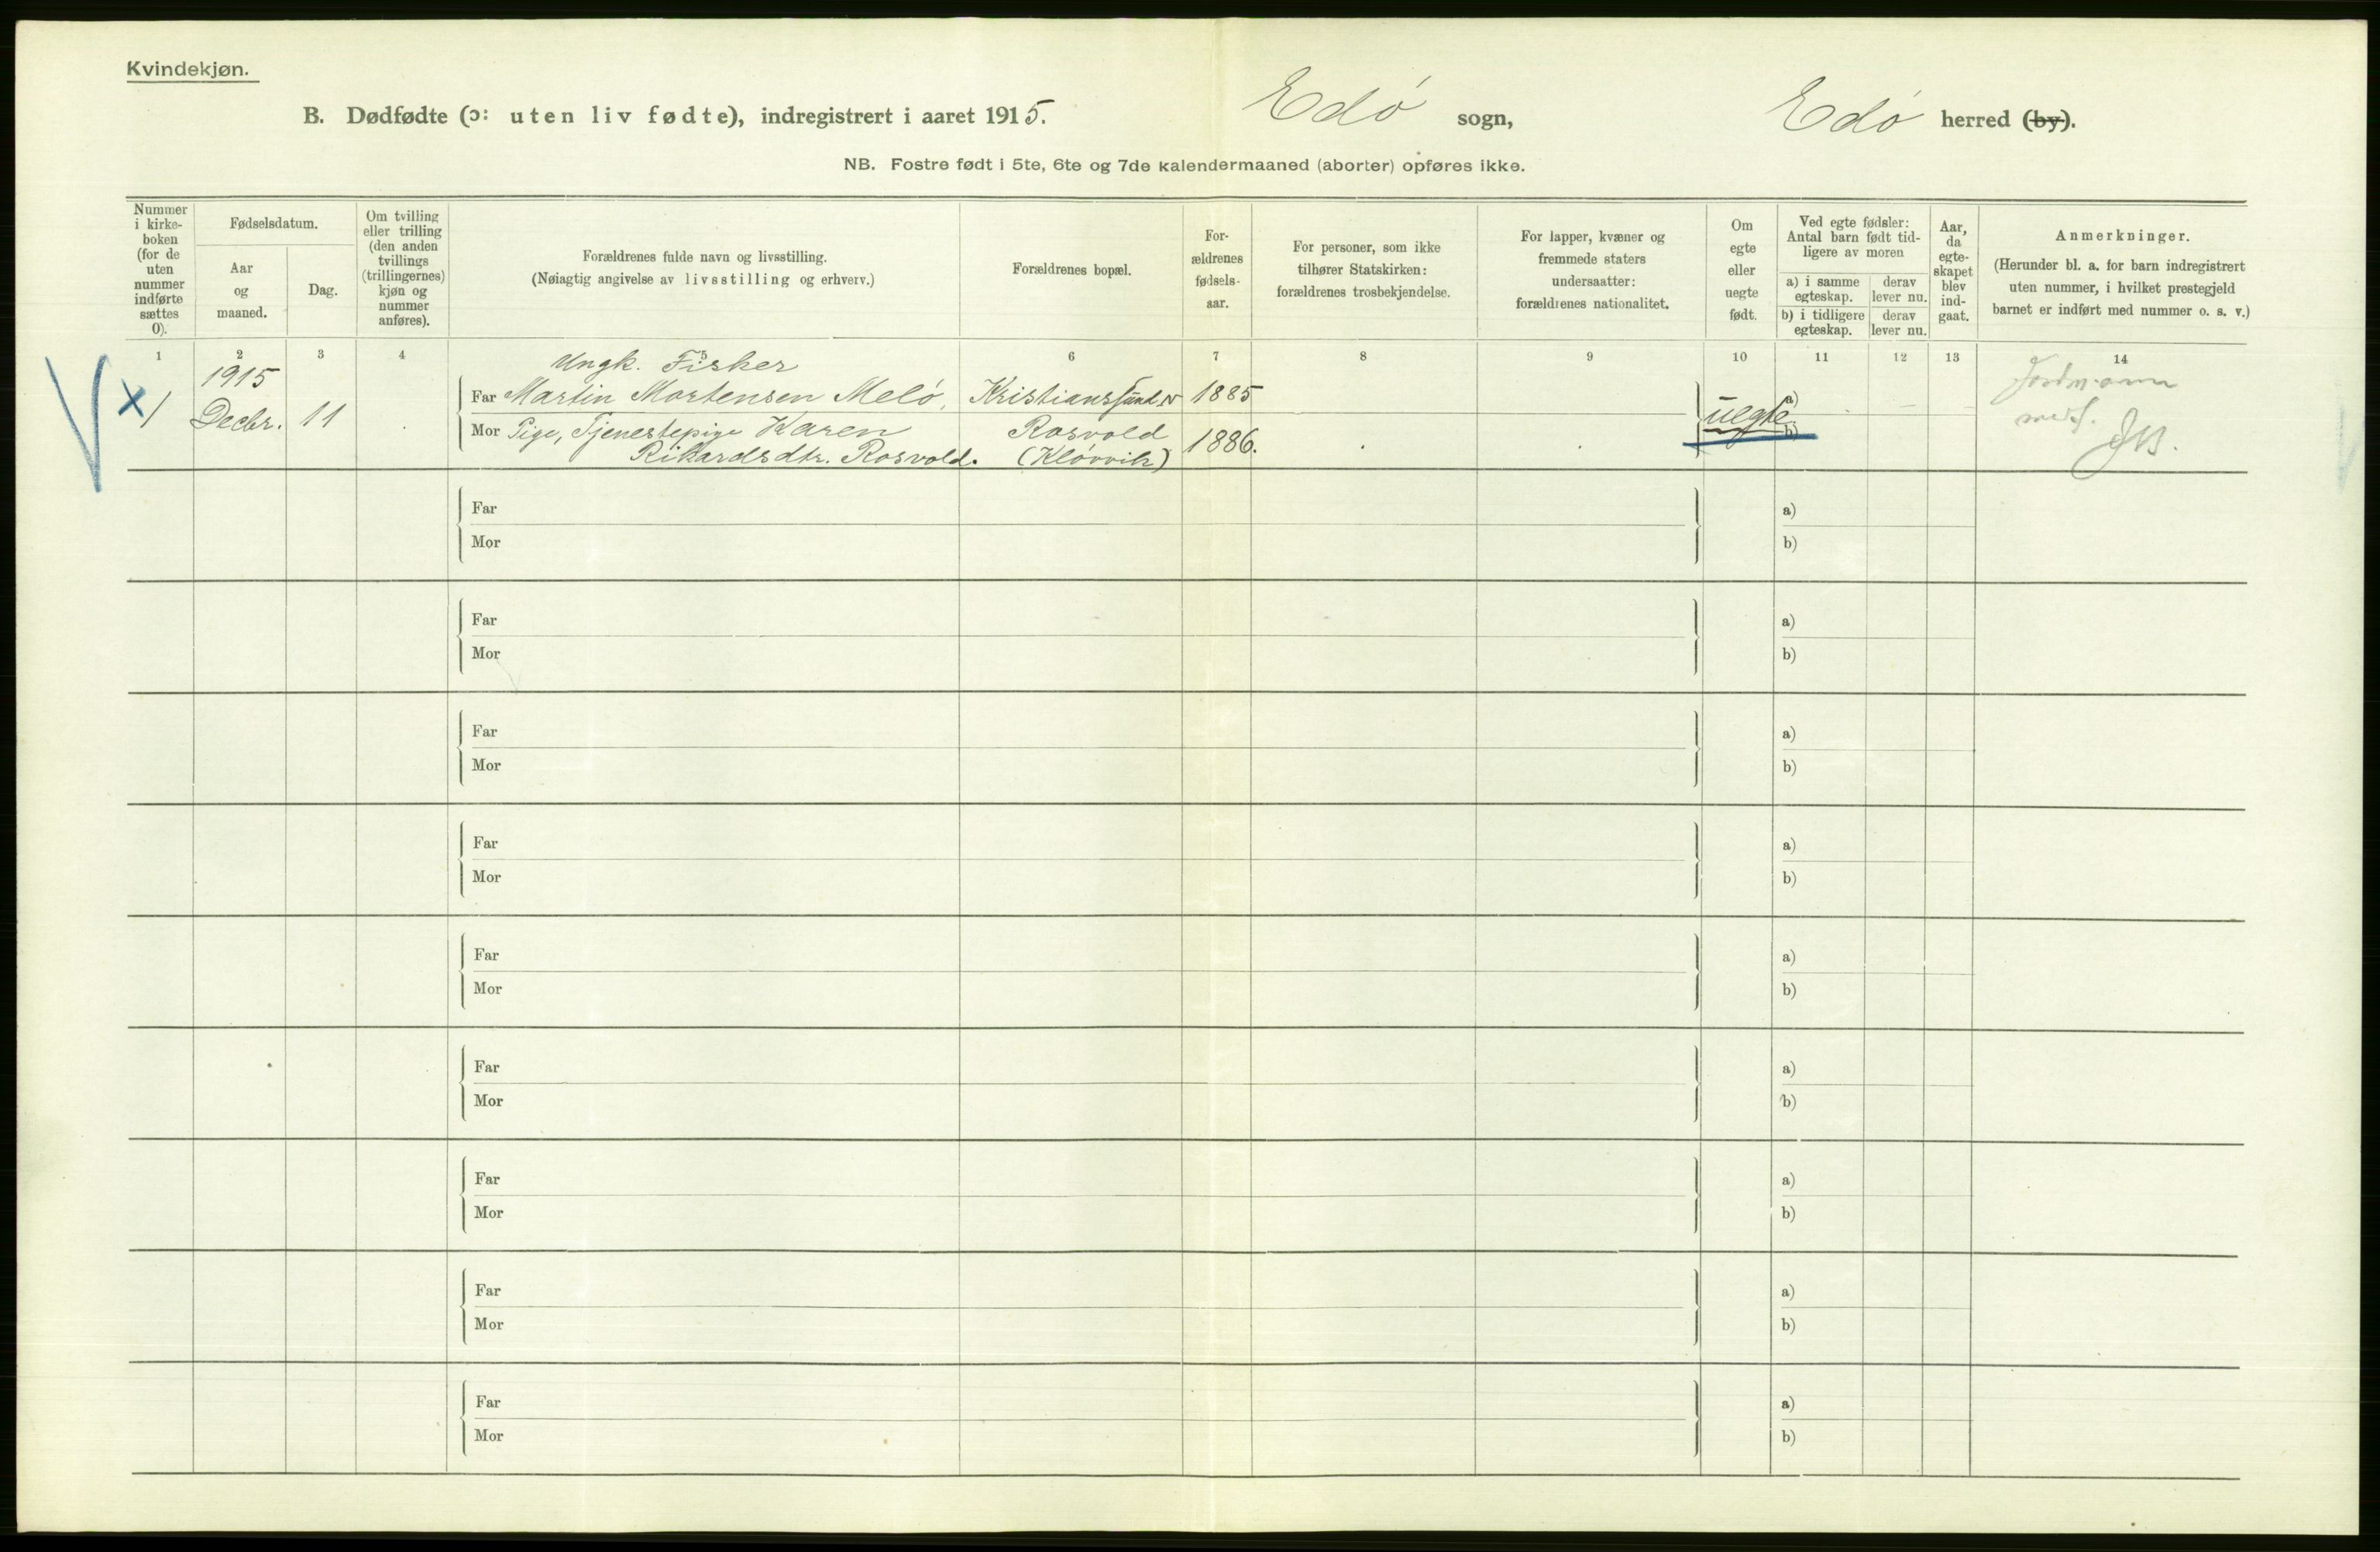 Kvindekjøn.
B. Dødfødte (ɔ: uten liv fødte), indregistrert i aaret 1915. Edó sogn, Edó herred (by).
NB. Fostre født i 5te, 6te og 7de kalendermaaned (aborter) opføres ikke.
Nummer
i kirke-
boken
(for de
uten
nummer
indførte
sættes
0).
Fødselsdatum.
Aar
og
maaned.
Dag.
Om tvilling
eller trilling
(den anden
tvillings
(trillingernes)
kjøn og
nummer
anføres).
Forældrenes fulde navn og livsstilling.
(Nøiagtig angivelse av livsstilling og erhverv.)
Forældrenes bopæl.
For-
ældrenes
fødsels-
aar.
For personer, som ikke
tilhører Statskirken:
forældrenes trosbekjendelse.
For lapper, kvæner og
fremmede staters
undersaatter:
forældrenes nationalitet.
Om
egte
eller
uegte
født.
Ved egte fødsler:
Antal barn født tid-
ligere av moren
a) i samme
egteskap.
derav
lever nu.
b) i tidligere
egteskap.
derav
lever nu.
Aar,
da
egte-
skapet
blev
ind-
gaat.
Anmerkninger.
(Herunder bl. a. for barn indregistrert
uten nummer, i hvilket prestegjeld
barnet er indført med nummer o. s. v.)
1 2 3 4 5 6 7 8 9 10 11 12 13 14
x 1
1915
Decbr. 11
Ungk. Fisker
Far Martin Mortensen Meló, Kristianssund N 1885
Mor Pige, Tjenestepige Karen Rosvold 1886.
Rikardsdtr. Rosvold. (Klóvvik)
uegte
a)
b)
Far
Mor
a)
b)
Far
Mor
a)
b)
Far
Mor
a)
b)
Far
Mor
a)
b)
Far
Mor
a)
b)
Far
Mor
a)
b)
Far
Mor
a)
b)
Far
Mor
a)
b)
Far
Mor
a)
b)